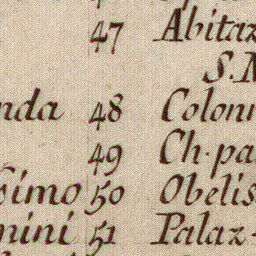 47 Abitaz
S.M
nda 48 Colonn
49 Ch. pa
simo 50 Obelis
nini 51 Palaz